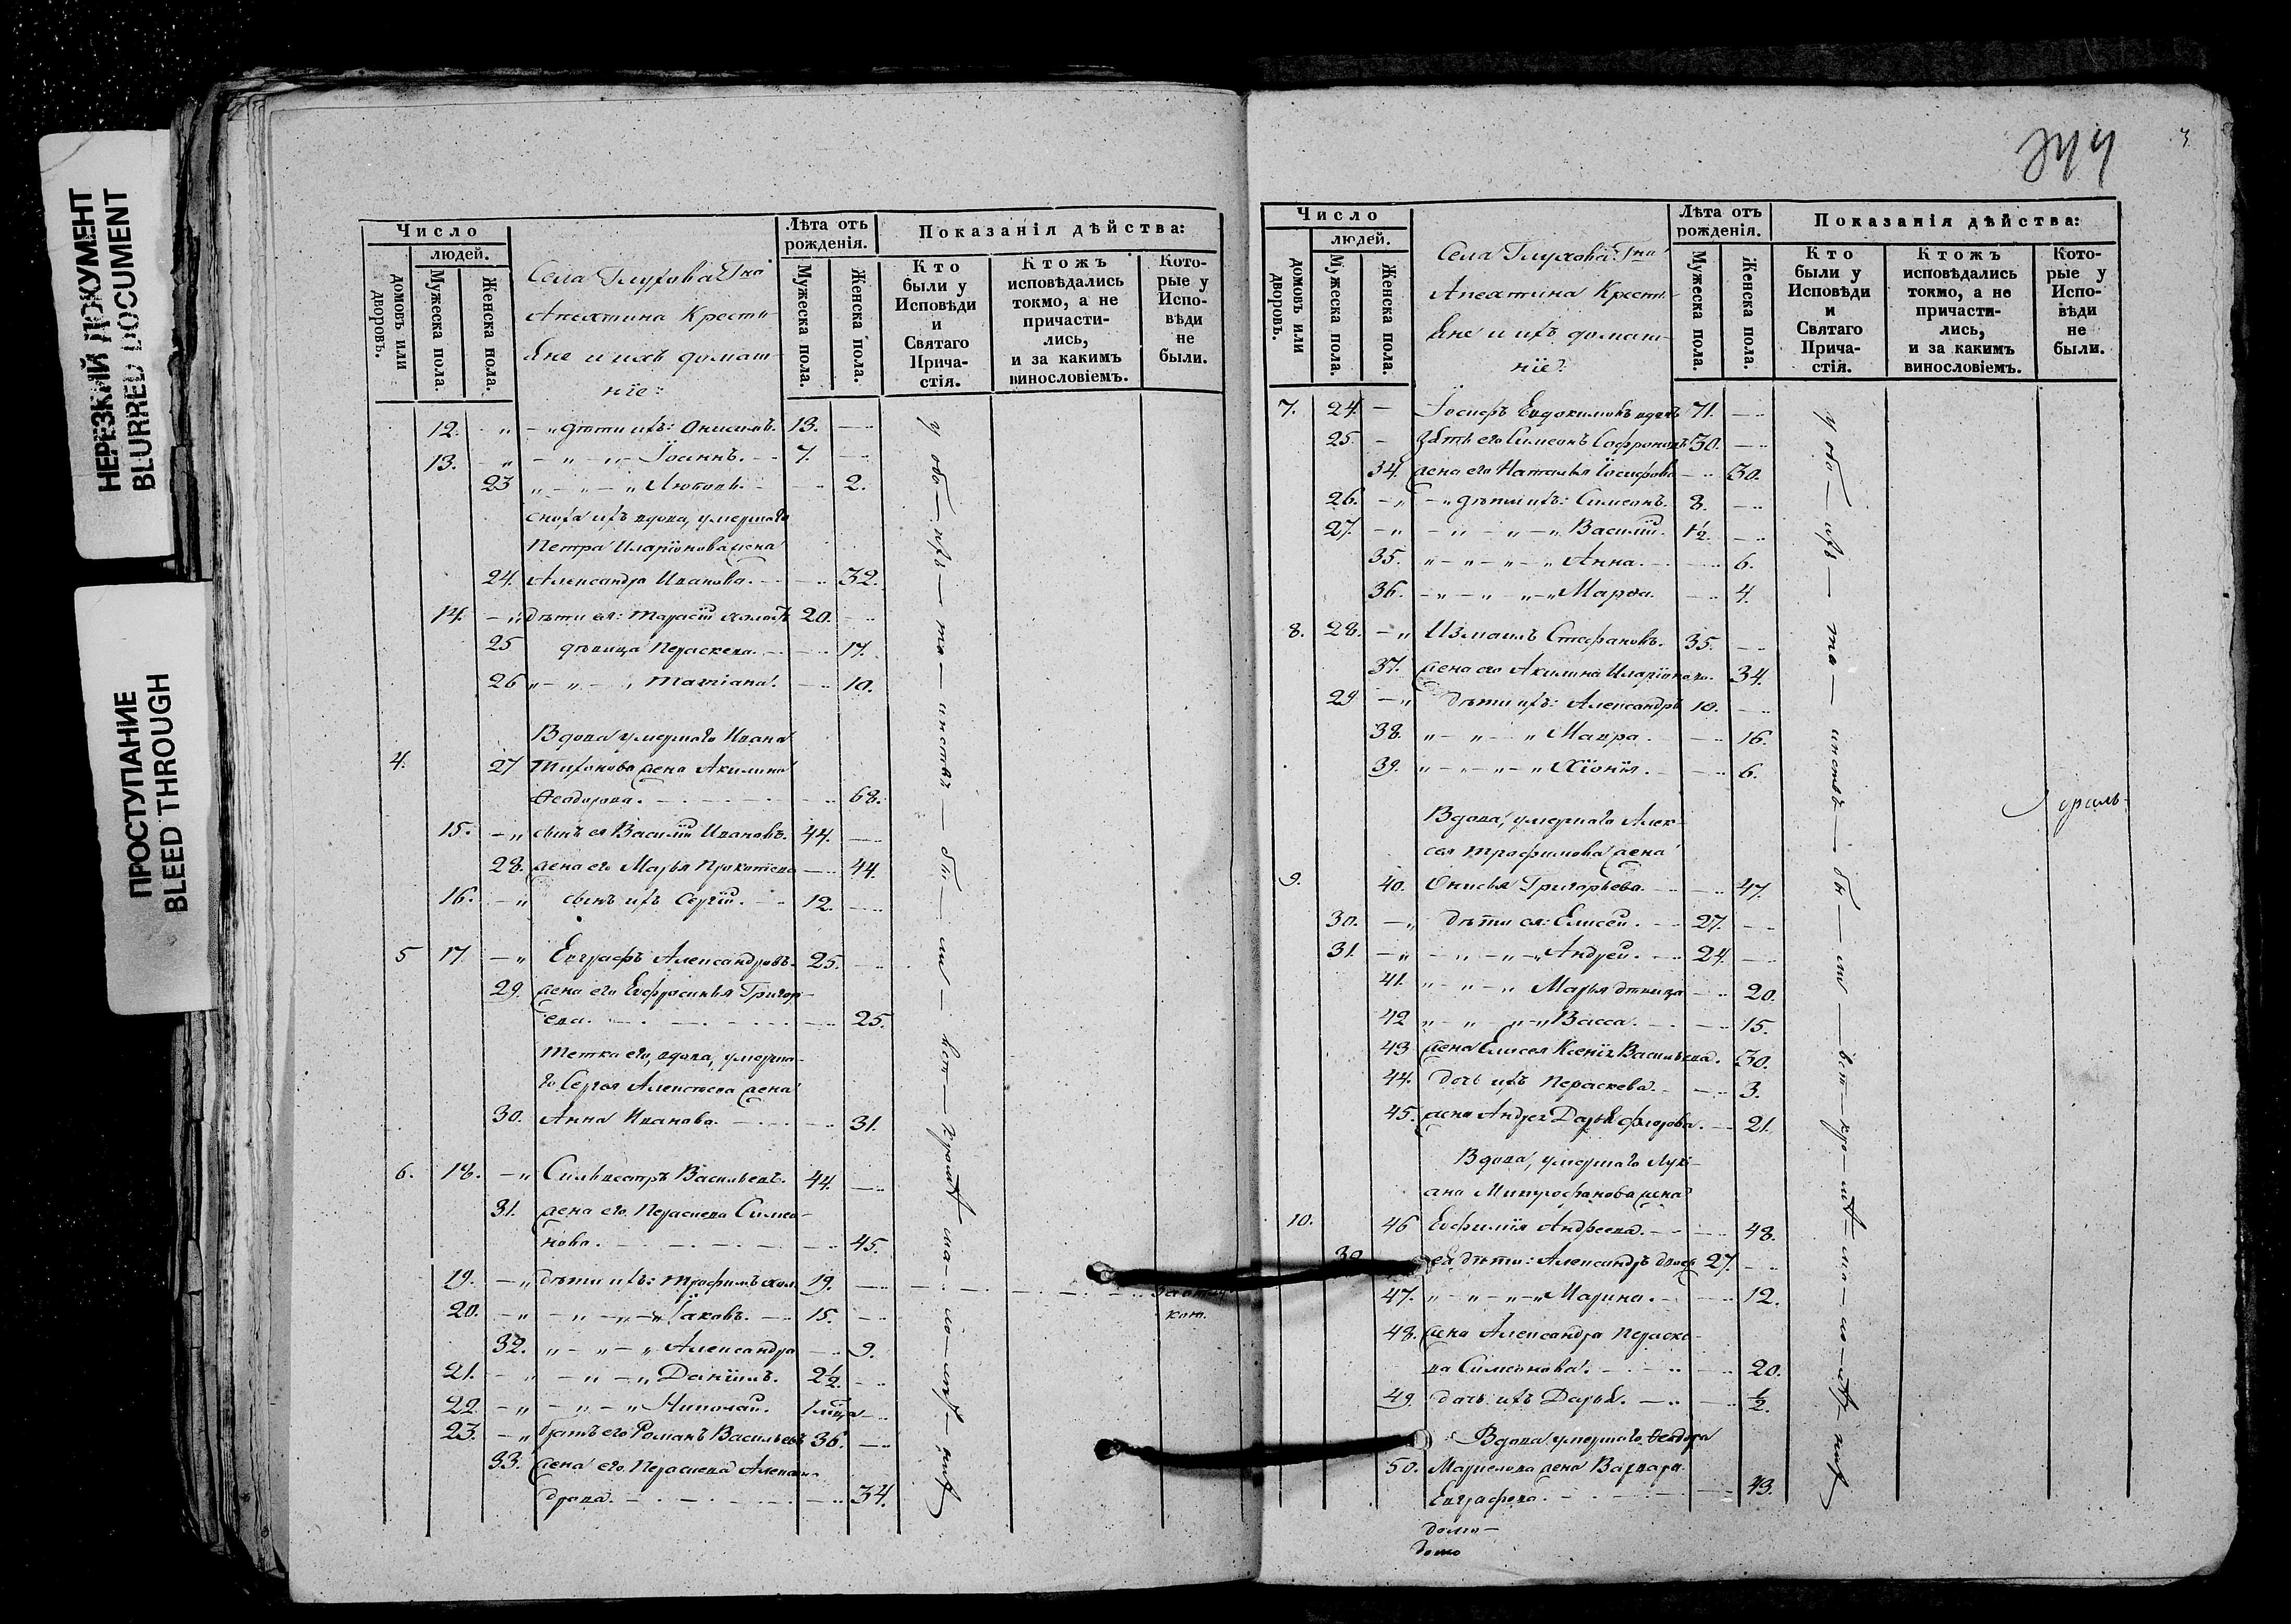 НЕРЕЗКИЙ ДОКУМЕНТ
BLURRED DOCUMENT
ПРОСТУПАНИЕ
BLEED THROUGH
Число
людей.
домовъ или дворовъ.
Мужеска пола.
Женска пола.
Села Глухова Гна
Апехтина Крестья-
не и ихъ домаш-
ніе:
Лѣта отъ рожденія.
Мужеска пола.
Женска пола.
Показанія дѣйства:
Кто были у Исповѣди и Святаго Причастія.
Ктожъ исповѣдались токмо, а не причастились, и за какимъ винословіемъ.
Которые у Исповѣди не были.
12. дѣти ихъ: Онисимъ. 13.
13. Іоаннъ. 7.
23 Любовь. 2.
сноха ихъ вдова, умершаго
Петра Иларіонова жена
24. Александра Иванова. 32.
14. дѣти ея: Тарасій холостъ 20.
25 дѣвица Параскева. 17.
26 Татіана. 10.
Вдова умершаго Ивана
4. 27 Тихонова жена Акилина
Ѳеодорова. 68.
15. сынъ ея Василій Ивановъ. 44.
28. жена его Марья Прокопіева 44.
16. сынъ ихъ Сергій. 12.
5 17. Евграфъ Александровъ. 25.
29. жена его Евфросинья Григор-
ева. 25.
Тетка его, вдова, умерша-
го Сергея Алексѣева жена
30. Анна Иванова. 31.
6. 18. Сильвестръ Васильевъ. 44.
31. жена его Параскева Симео-
нова. 45.
19. дѣти ихъ: Трофимъ хол. 19.
20. Іаковъ. 15.
32. Александра 9.
21. Даніилъ. 2½.
22. Николай.
23. братъ его Романъ Васильевъ 36.
33. жена его Параскева Алексан-
дрова. 34.
344
3
Число
людей.
домовъ или дворовъ.
Мужеска пола.
Женска пола.
Села Глухова Гна
Апехтина Крестья-
не и ихъ домаш-
ніе:
Лѣта отъ рожденія.
Мужеска пола.
Женска пола.
Показанія дѣйства:
Кто были у Исповѣди и Святаго Причастія.
Ктожъ исповѣдались токмо, а не причастились, и за какимъ винословіемъ.
Которые у Исповѣди не были.
7. 24. Іосифъ Евдокимовъ вдовъ 71.
25. Зять его Симеонъ Софроновъ 30.
34. жена его Наталья Іосифова 30.
26. дѣти ихъ: Симеонъ. 8.
27. Василій. 1½.
35. Анна. 6.
36. Марѳа. 4.
8. 28. Измаилъ Стефановъ. 35.
37. жена его Акилина Иларіонова. 34.
29 дѣти ихъ: Александръ 10.
38. Мавра. 16.
39. Хіонія. 6.
Вдова, умершаго Алек-
сея Трофимова жена
9. 40. Онисья Григорьева. 47.
30. дѣти ея: Елисей. 27.
31. Андрей. 24.
41. Марья дѣвица 20.
42 Васса. 15.
43 жена Елисея Ксенія Васильева. 30.
44. дочь ихъ Параскева. 3.
45. жена Андрея Дарья Флорова. 21.
Вдова, умершаго Луки-
ана Митрофанова жена
10. 46 Евфимія Андреева. 48.
ея дѣти: Александръ 27.
47. Марина. 12.
48. жена Александра Параске-
ва Симеонова. 20.
49. дочь ихъ Дарья. ½.
Вдова умершаго Ѳеодора
50. жена Варвара
Евграфова. 43.